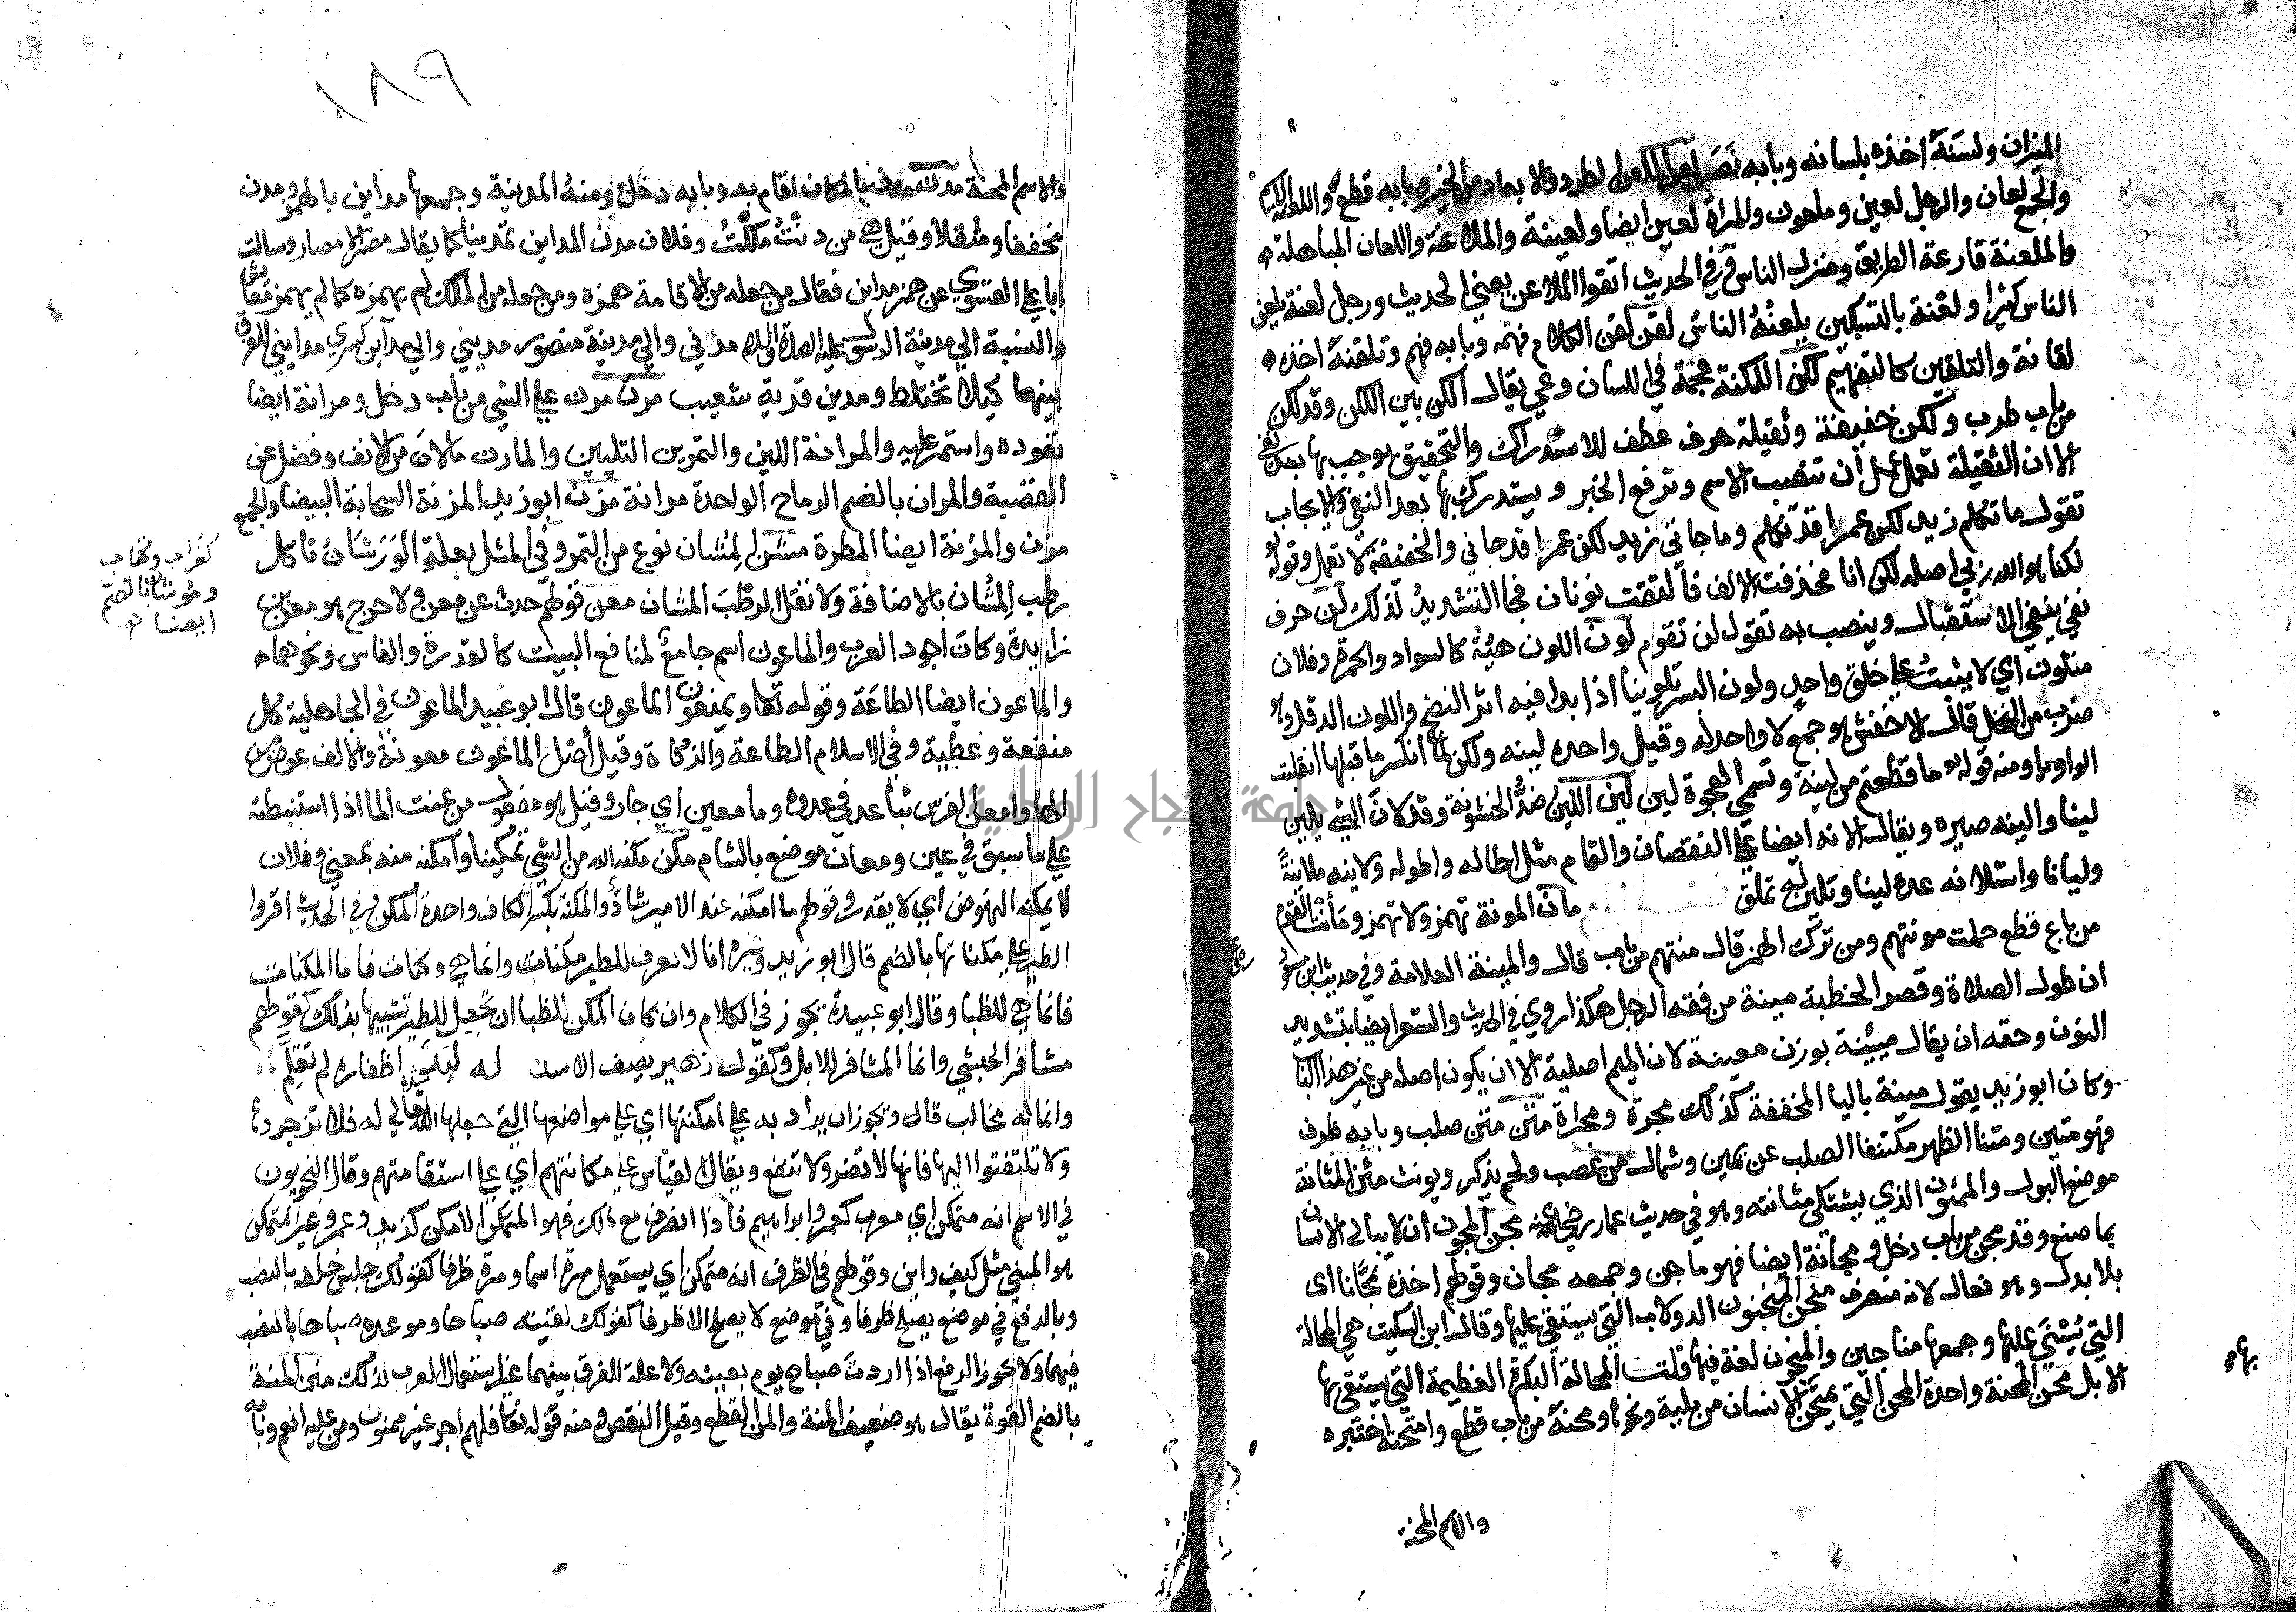 الميزان ولسنه اخذه بلسانه وبابه نصر لعن اللعن الطرد والابعاد من الخير وبابه قطع واللعنة الاسم
والجمع لعان والرجل لعين وملعون والمراة لعين ايضا ولعينة والملاعنة واللعان المباهلة
والملعنة قارعة الطريق ومنزل الناس وفي الحديث اتقوا الملاعن يعني الحديث ورجل لعنة يلعن
الناس كثيرا ولعنة بالتسكين يلعنه الناس لقن لقن الكلام فهمه وبابه فهم وتلقنه اخذه
لقانة والتلقين كالتفهيم لكن اللكنة عجمة في اللسان وعي يقال الكن بين اللكن وقد لكن
من باب طرب ولكن خفيفة وثقيلة حرف عطف للاستدراك والتحقيق يوجب بها بعد نفي
الا ان الثقيلة تعمل عمل ان تنصب الاسم وترفع الخبر ويستدرك بها بعد النفي والايجاب
تقول ما تكلم زيد لكن عمرا قد تكلم وما جاني زيد لكن عمرا قد جاني والخفيفة لا تعمل وقوله تع
لكنا هو الله ربي اصله لكن انا فحذفت الالف فالتقت نونان فجا التشديد لذلك لن حرف
نفي ينفي الاستقبال وينصب به تقول لن تقوم لون اللون هيئة كالسواد والحمرة وفلان
متلون اي لا يثبت علي خلق واحد ولون البسر تلوينا اذا بدا فيه اثر النضج واللون الدقل وهو
ضرب من النخل قال الاخفش هو جمع لا واحد له وقيل واحده لينه ولكن لما انكسر ما قبلها انقلبت
الواو يا ومنه قوله تع ما قطعتم من لينة وتسمي العجوة لين لين اللين ضد الخشونة وقد لان الشي يلين
لينا والينه صيره ويقال الانه ايضا علي النقصان والتمام مثل اطاله واطوله ولاينه ملاينة
وليانا واستلانه عده لينا وتلين له تملق مان المونة تهمز ولا تهمز ومأنت القوم
من باب قطع حملت مونتهم ومن ترك الهمز قال منتهم من باب قال والمينة العلامة وفي حديث ابن مسعود
رضي
ان طول الصلاة وقصر الخطبة مينة من فقه الرجل هكذا روي في الحديث والشعر ايضا بتشديد
النون وحقه ان يقال مئينة بوزن معينة لان الميم اصلية الا ان يكون اصله من غير هذا الباب
وكان ابو زيد يقول مينة باليا المخففة كذلك مجرة ومحراة متن متن صلب وبابه ظرف
فهو متين ومتنا الظهر مكتنفا الصلب عن يمين وشمال من عصب ولحم يذكر ويونث مثن المثانة
موضع البول والممثون الذي يشتكي مثانته وهو في حديث عمار رضي الله عنه مجن المجون ان لا يبالي الانسان
بما صنع وقد مجن من باب دخل ومجانة ايضا فهو ماجن وجمعه مجان وقولهم اخذه مجانا اي
بلا بدل وهو فعال لانه منصرف منجن المنجنون الدولاب التي يستقي عليها وقال ابن السكيت هي المحالة
التي يسني عليها وجمعها مناجين والمنجنون لغة فيها قلت المحالة البكرة العظيمة التي يستقي بها
بها
الابل محن المحنة واحدة المحن التي يمتحن الانسان من بلية ونحوه ومحنه من باب قطع وامتحنه اختبره
والاسم المحنة
١٨٩
والاسم المحنة مدن مدن بالمكان اقام به وبابه دخل ومنه المدينة وجمعها مداين بالهمز ومدن
مخففا ومثقلا وقيل هي من دنت ملكت وفلان مدن المداين تمدينا كما يقال مصر الامصار وسالت
ابا علي الفسوي عن همز مداين فقال من جعله من الاقامة همزه ومن جعله من الملك لم يهمزه كما لم يهمز معايش
والنسبة الي مدينة الرسول عليه الصلاة والسلام مدني والي مدينة منصور مديني والي مداين كسري مدايني للفرق
بينهما كيلا تختلط ومدين قرية شعيب مرن مرن علي الشي من باب دخل ومرانة ايضا
تعوده واستمر عليه والمرانة اللين والتمرين التليين والمارن ما لان من الانف وفضل عن
القصبة والمران بالضم الرماح الواحدة مرانة مزن ابو زيد المزنة السحابة البيضا والجمع
مزن والمزنة ايضا المطرة مشن المشان نوع من التمر وفي المثل بعلة الورشان تاكل
كغراب وكتاب
وموشان بالضم
ايضا
رطب المشان بالاضافة ولا تقل الرطب المشان معن قولهم حدث عن معن ولا حرج هو معن بن
زايدة وكان اجود العرب والماعون اسم جامع لمنافع البيت كالقدر والفاس ونحوهما
والماعون ايضا الطاعة وقوله تعا ويمنعون الماعون قال ابو عبيد الماعون في الجاهلية كل
منفعة وعطية وفي الاسلام الطاعة والزكاة وقيل اصل الماعون معونة والالف عوض من
الها وامعن الفرس تباعد في عدوه وما معين اي جار وقيل هو مفعول من عنت الما اذا استنبطته
علي ما سبق في عين ومعان موضع بالشام مكن مكنه الله من الشي تمكينا وامكنه منه بمعني وفلان
لا يمكنه النهوض اي لا يقدر وقولهم ما امكنه عند الامير شاذ والمكنة بكسر الكاف واحدة المكن وفي الحديث اقروا
الطير علي مكناتها بالضم قال ابو زيد وغيره انا لا نعرف للطير مكنات وانما هي وكنات فاما المكنات
فانما هي للظبا وقال ابو عبيدة يجوز في الكلام وان كان المكن للظبا ان يجعل للطير تشبيها بذلك كقولهم
مشافر الحبشي وانما المشافر للابل وكقول زهير يصف الاسد له لبد اظفاره لم تقلم
وانما له مخالب قال ويجوز ان يراد به علي امكنتها اي علي مواضعها التي جعلها الله تعالي له فلا تزجروها
ولا تلتفتوا اليها فانها لا تضر ولا تنفع ويقال الناس علي مكانتهم اي علي استقامتهم وقال النحويون
في الاسم انه متمكن اي معرب كعمر وابراهيم فاذا انصرف مع ذلك فهو المتمكن الامكن كزيد وعمرو وغير المتمكن
هو المبني مثل كيف واين وقولهم في الظرف انه متمكن اي يستعمل مرة اسما ومرة ظرفا كقولك جلس خلفه بالنصب
وبالرفع في موضع يصلح ظرفا وفي موضع لا يصلح الا ظرفا كقولك لقيته صباحا وموعده صباحا بالنصب
فيهما ولا يجوز الرفع اذا اردت صباح يوم بعينه ولا علة للفرق بينهما غير استعمال العرب لذلك منن المنة
بالضم القوة يقال هو ضعيف المنة والمن القطع وقيل النقص ومنه قوله تعا فلهم اجر غير ممنون ومن عليه انعم وبابه